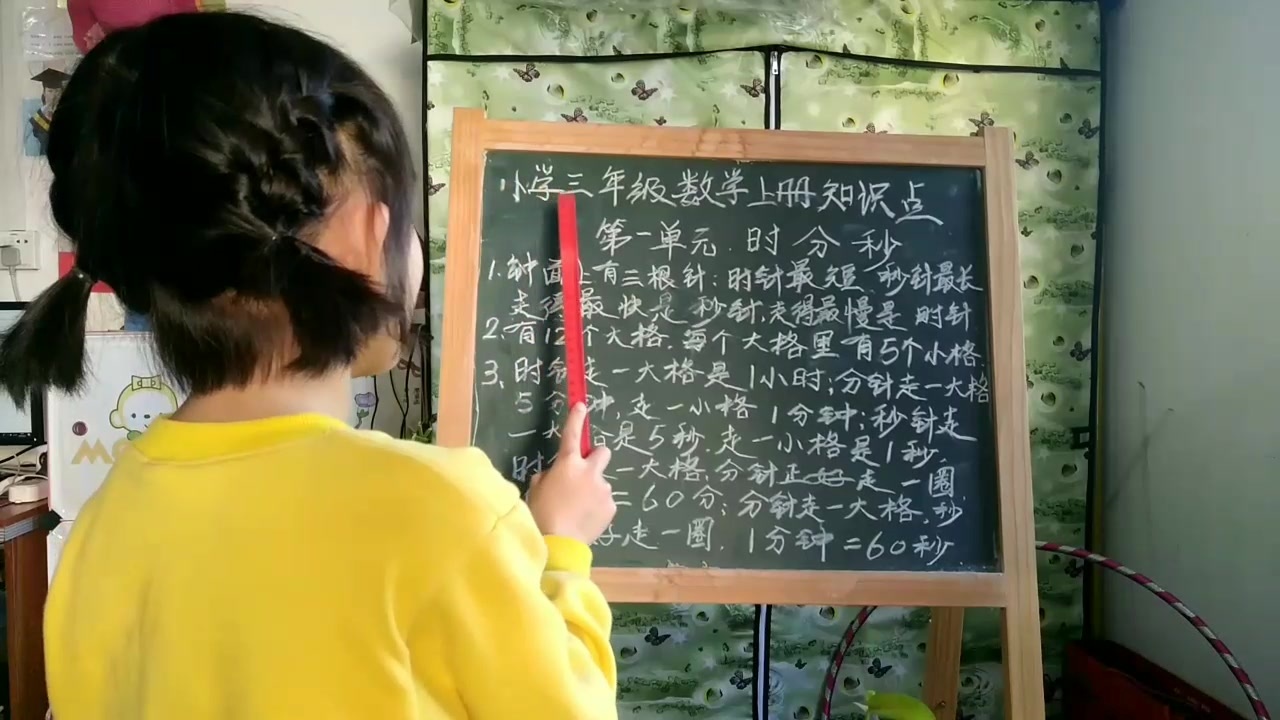 小学三年级数学上册知识点
第一单元 时 分 秒
1. 钟面上有三根针：时针最短 秒针最长
走得最快是 秒针，走得最慢是 时针
2. 有12个大格．每个大格里有5个小格．
3、时针走一大格是1小时；分针走一大格
5分钟，走一小格 1分钟；秒针走
一大格是5秒．走一小格是1秒．
时 一大格，分针正好走一圈
=60分；分针走一大格．秒
好走一圈．1分钟=60秒．